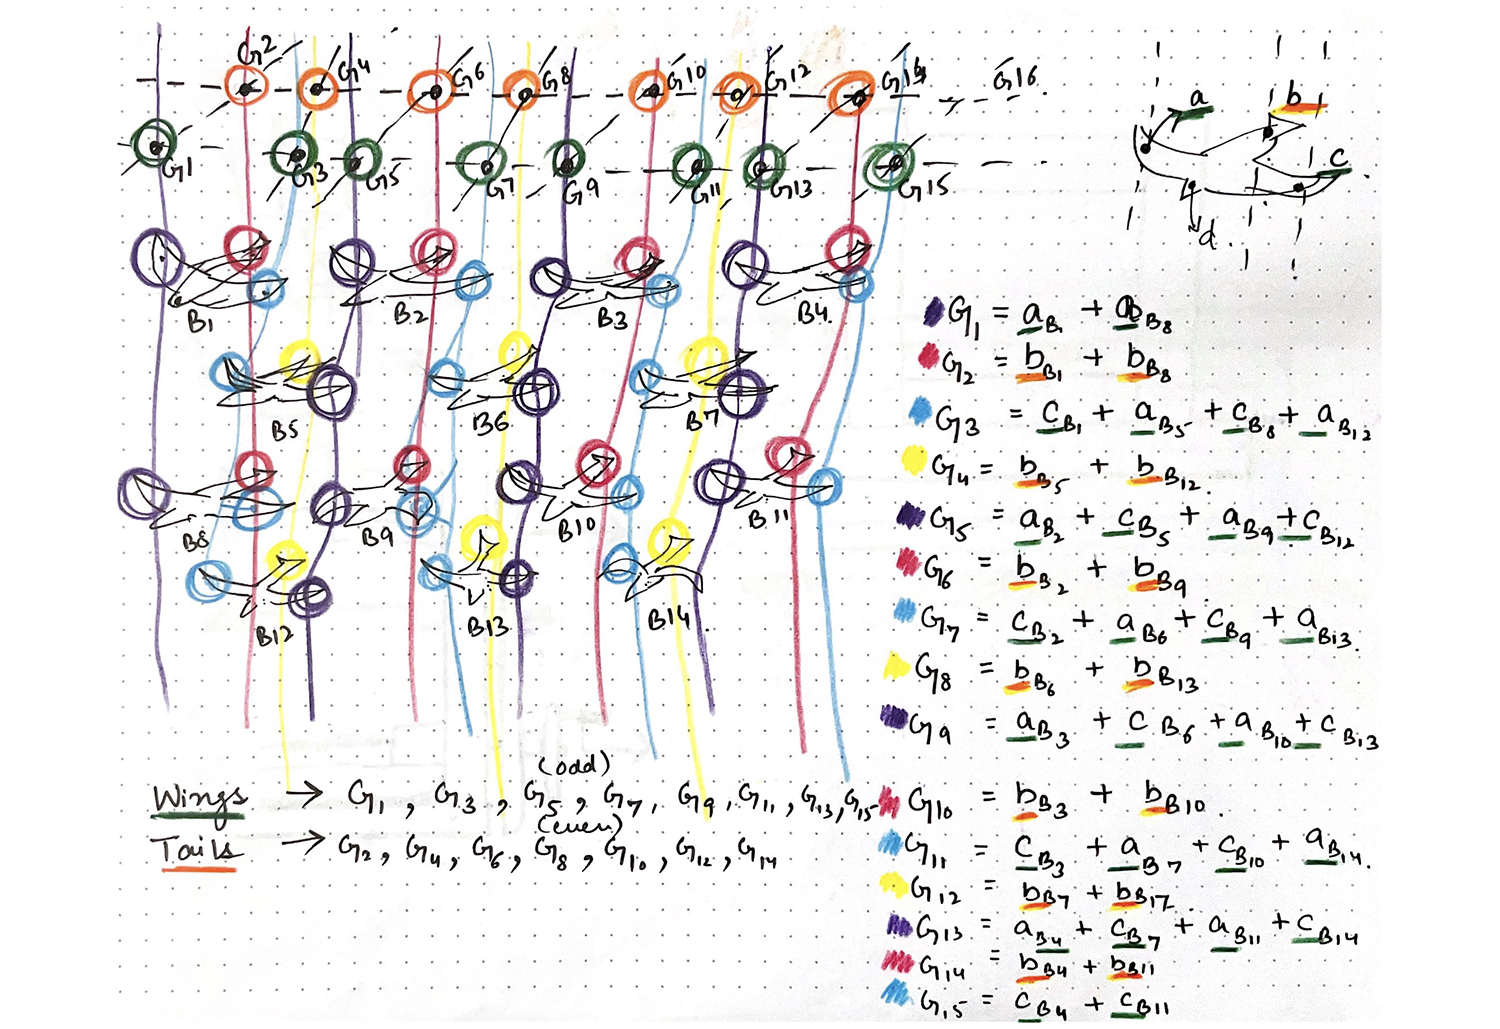 G2 G4 G6 G8 G10 G12 G14 G16.
G1 G3 G5 G7 G9 G11 G13 G15
B1 B2 B3 B4
B5 B6 B7
B8 B9 B10 B11
B12 B13 B14
a b
c
d
G1 = aB1 + aB8
G2 = bB1 + bB8
G3 = cB1 + aB5 + cB8 + aB12
G4 = bB5 + bB12.
G5 = aB2 + cB5 + aB9 + cB12
G6 = bB2 + bB9
G7 = cB2 + aB6 + cB9 + aB13.
G8 = bB6 + bB13
G9 = aB3 + cB6 + aB10 + cB13
G10 = bB3 + bB10.
G11 = cB3 + aB7 + cB10 + aB14.
G12 = bB7 + bB17
G13 = aB4 + cB7 + aB11 + cB14
G14 = bB4 + bB11
G15 = cB4 + cB11
(odd)
Wings → G1, G3, G5, G7, G9, G11, G13, G15
(even)
Tails → G2, G4, G6, G8, G10, G12, G14